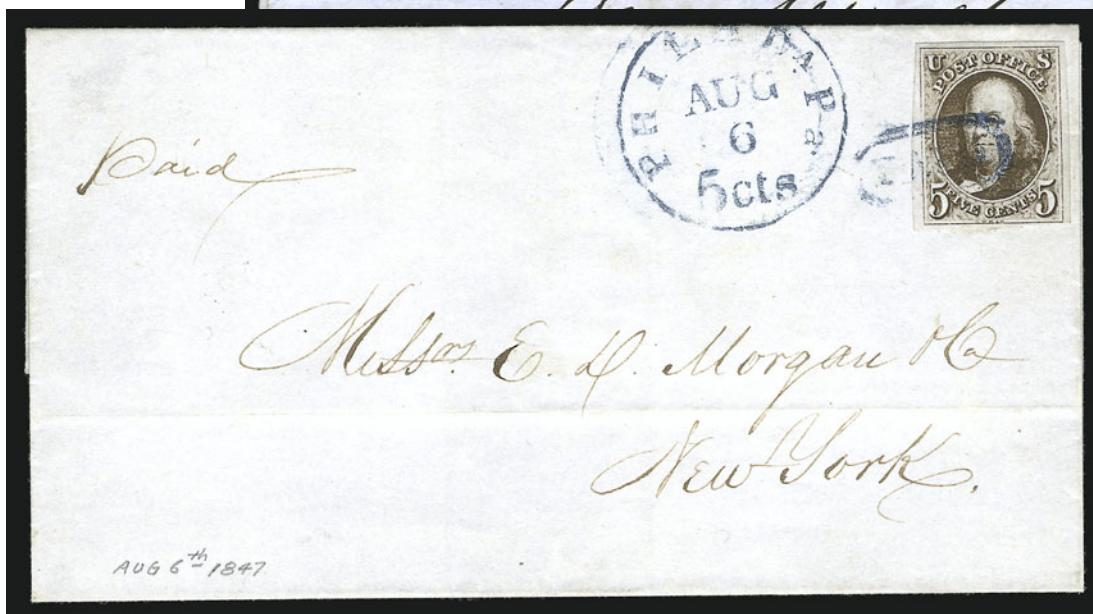 PHILADA Pa
AUG
6
5cts
U S
POST OFFICE
5 FIVE CENTS 5
5
Paid
Messrs. E. D. Morgan & Co
New York.
AUG 6th 1847